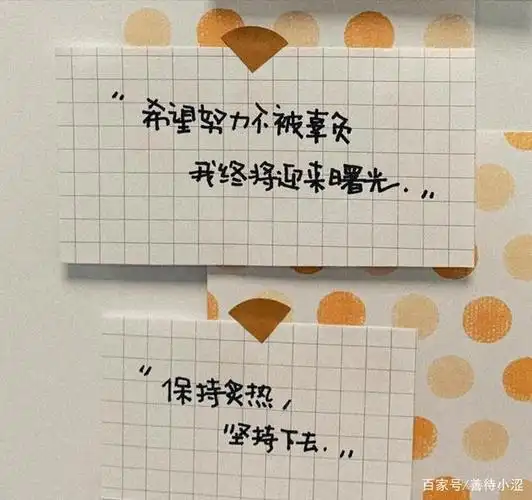 “希望努力不被辜负
我终将迎来曙光.”
“保持炙热,
坚持下去.”
百家号/善待小涩